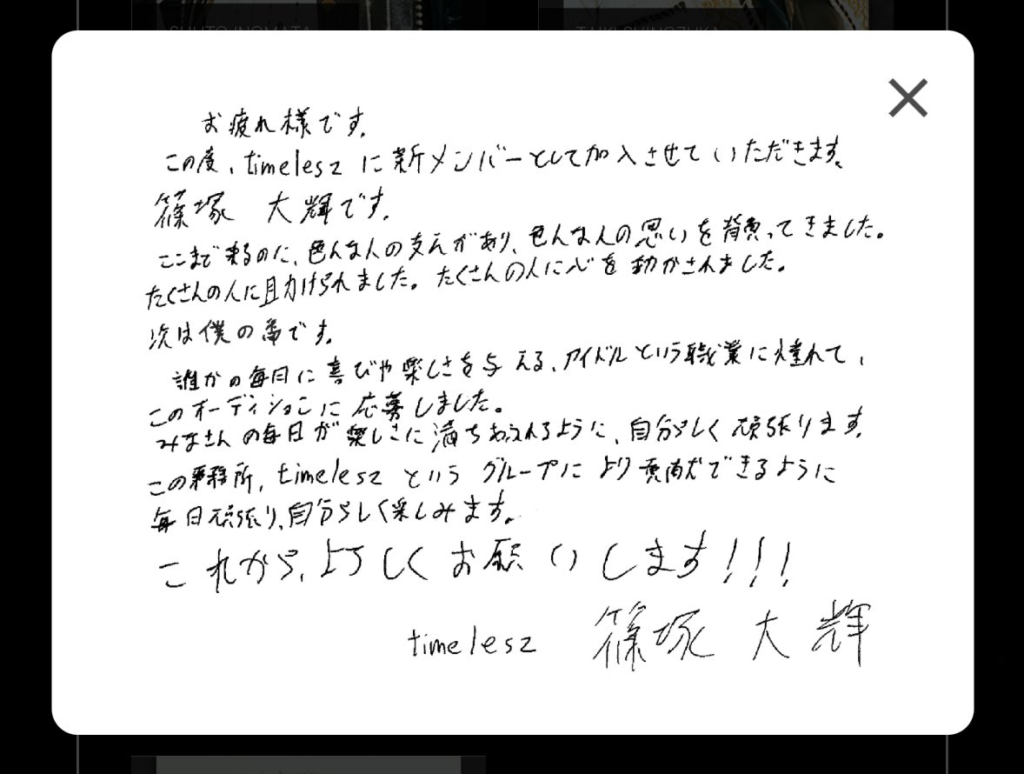 お疲れ様です。
この度、timelesz に新メンバーとして加入させていただきます。
篠塚 大輝です。
ここまで来るのに、色んな人の支えがあり、色んな人の思いを背負ってきました。
たくさんの人に助けられました。たくさんの人に心を動かされました。
次は僕の番です。
誰かの毎日に喜びや楽しさを与える、アイドルという職業に憧れて、
このオーディションに応募しました。
みなさんの毎日が楽しさに満ちあふれるように、自分らしく頑張ります。
この事務所、timelesz というグループにより貢献できるように
毎日頑張り、自分らしく楽しみます。
これから、よろしくお願いします!!!
timelesz 篠塚 大輝